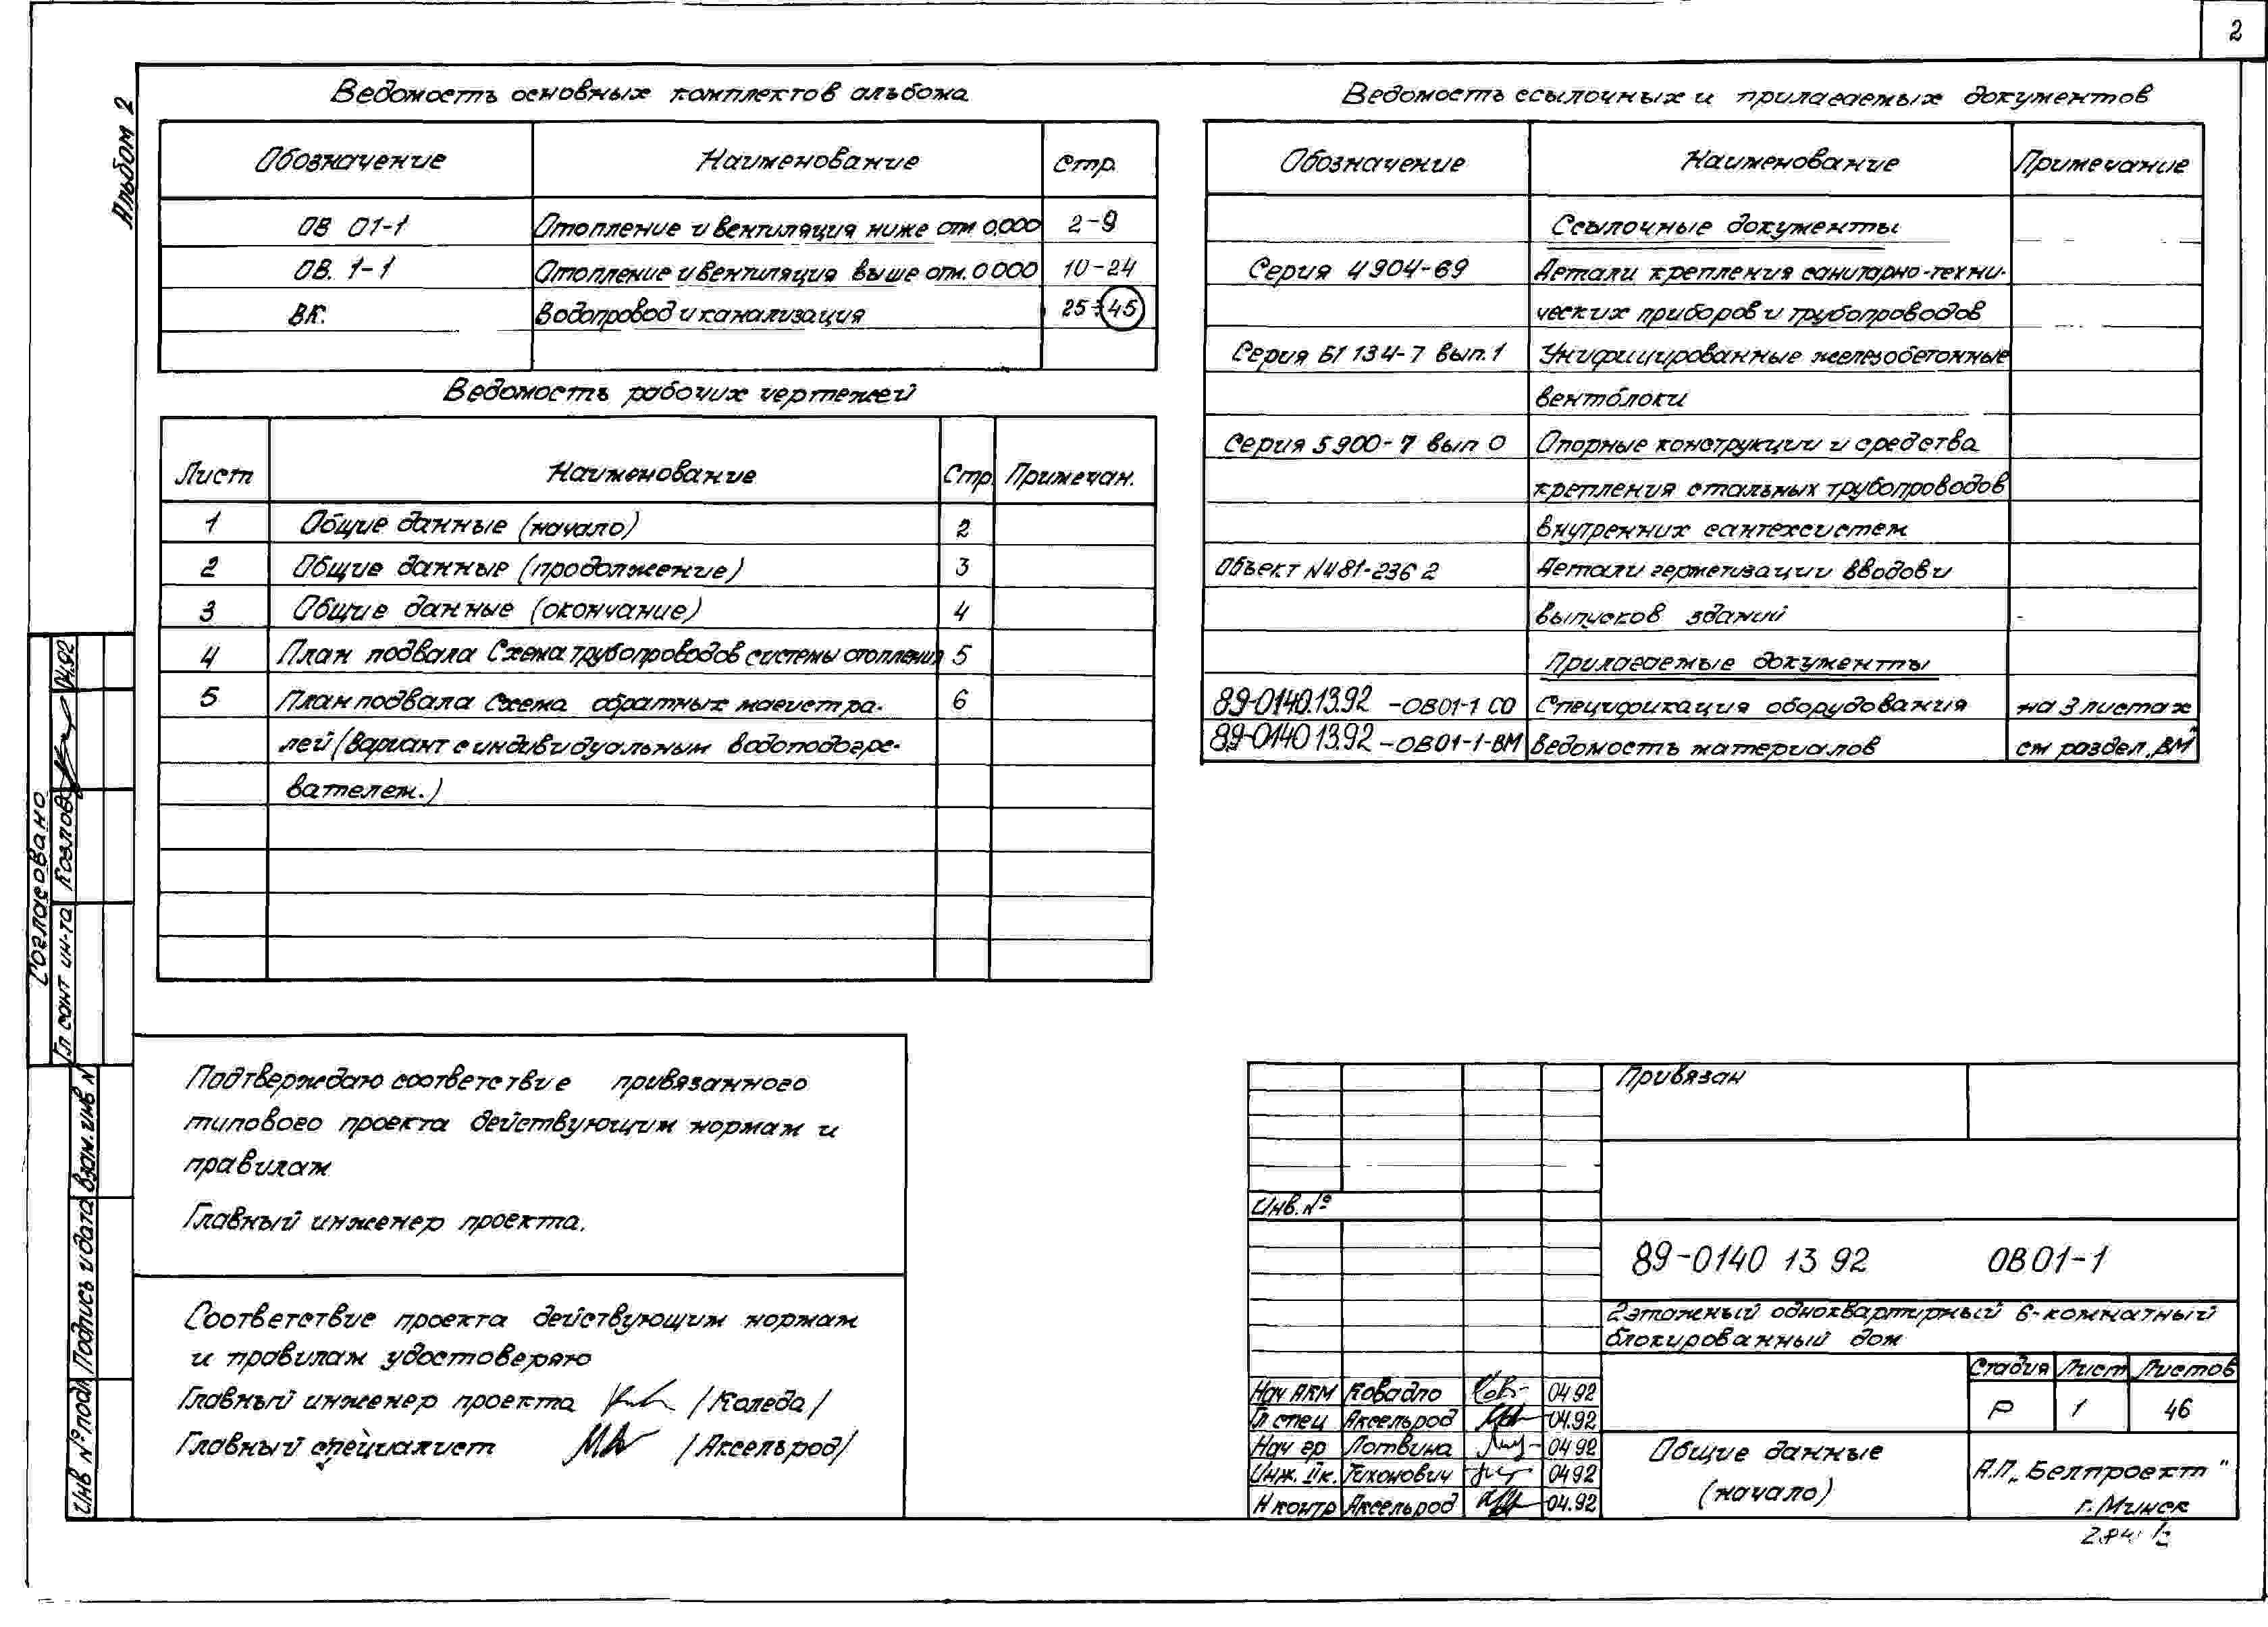 2
Альбом 2
Ведомость основных комплектов альбома
Обозначение Наименование Стр.
ОВ 01-1 Отопление и вентиляция ниже отм 0.000 2-9
ОВ. 1-1 Отопление и вентиляция выше отм. 0 000 10-24
ВК. Водопровод и канализация 25÷45
Ведомость рабочих чертежей
Лист Наименование Стр. Примечан.
1 Общие данные (начало) 2
2 Общие данные (продолжение) 3
3 Общие данные (окончание) 4
4 План подвала Схема трубопроводов системы отопления 5
5 План подвала Схема обратных магистра- 6
лей (вариант с индивидуальным водоподогре-
вателем.)
Ведомость ссылочных и прилагаемых документов
Обозначение Наименование Примечание
Ссылочные документы
Серия 4 904-69 Детали крепления санитарно-техни-
ческих приборов и трубопроводов
Серия Б1 134-7 вып. 1 Унифицированные железобетонные
вентблоки
Серия 5 900-7 вып 0 Опорные конструкции и средства
крепления стальных трубопроводов
внутренних сантехсистем
Объект N 481-236 2 Детали герметизации вводов и
выпусков зданий
Прилагаемые документы
89-0140.13.92 -ОВ01-1 СО Спецификация оборудования на 3 листах
89-0140 13.92 -ОВ01-1-ВМ Ведомость материалов см раздел „ВМ"
Согласовано
Гл сант ин-та Козлов 04.92
Взам. инв N
Подпись и дата
Инв № подл
Подтверждаю соответствие привязанного
типового проекта действующим нормам и
правилам
Главный инженер проекта.
Соответствие проекта действующим нормам
и правилам удостоверяю
Главный инженер проекта /Коледа/
Главный специалист /Аксельрод/
Привязан
Инв. №
89-0140 13 92 ОВ 01-1
2этажный одноквартирный 6-комнатный
блокированный дом
Стадия Лист Листов
Р 1 46
Нач АКМ Ковадло 04 92
Гл спец Аксельрод 04.92
Нач гр Лотвина 04 92
Инж. IIк. Тихонович 04 92
Н контр Аксельрод 04.92
Общие данные
(начало)
А.П „Белпроект"
г. Минск